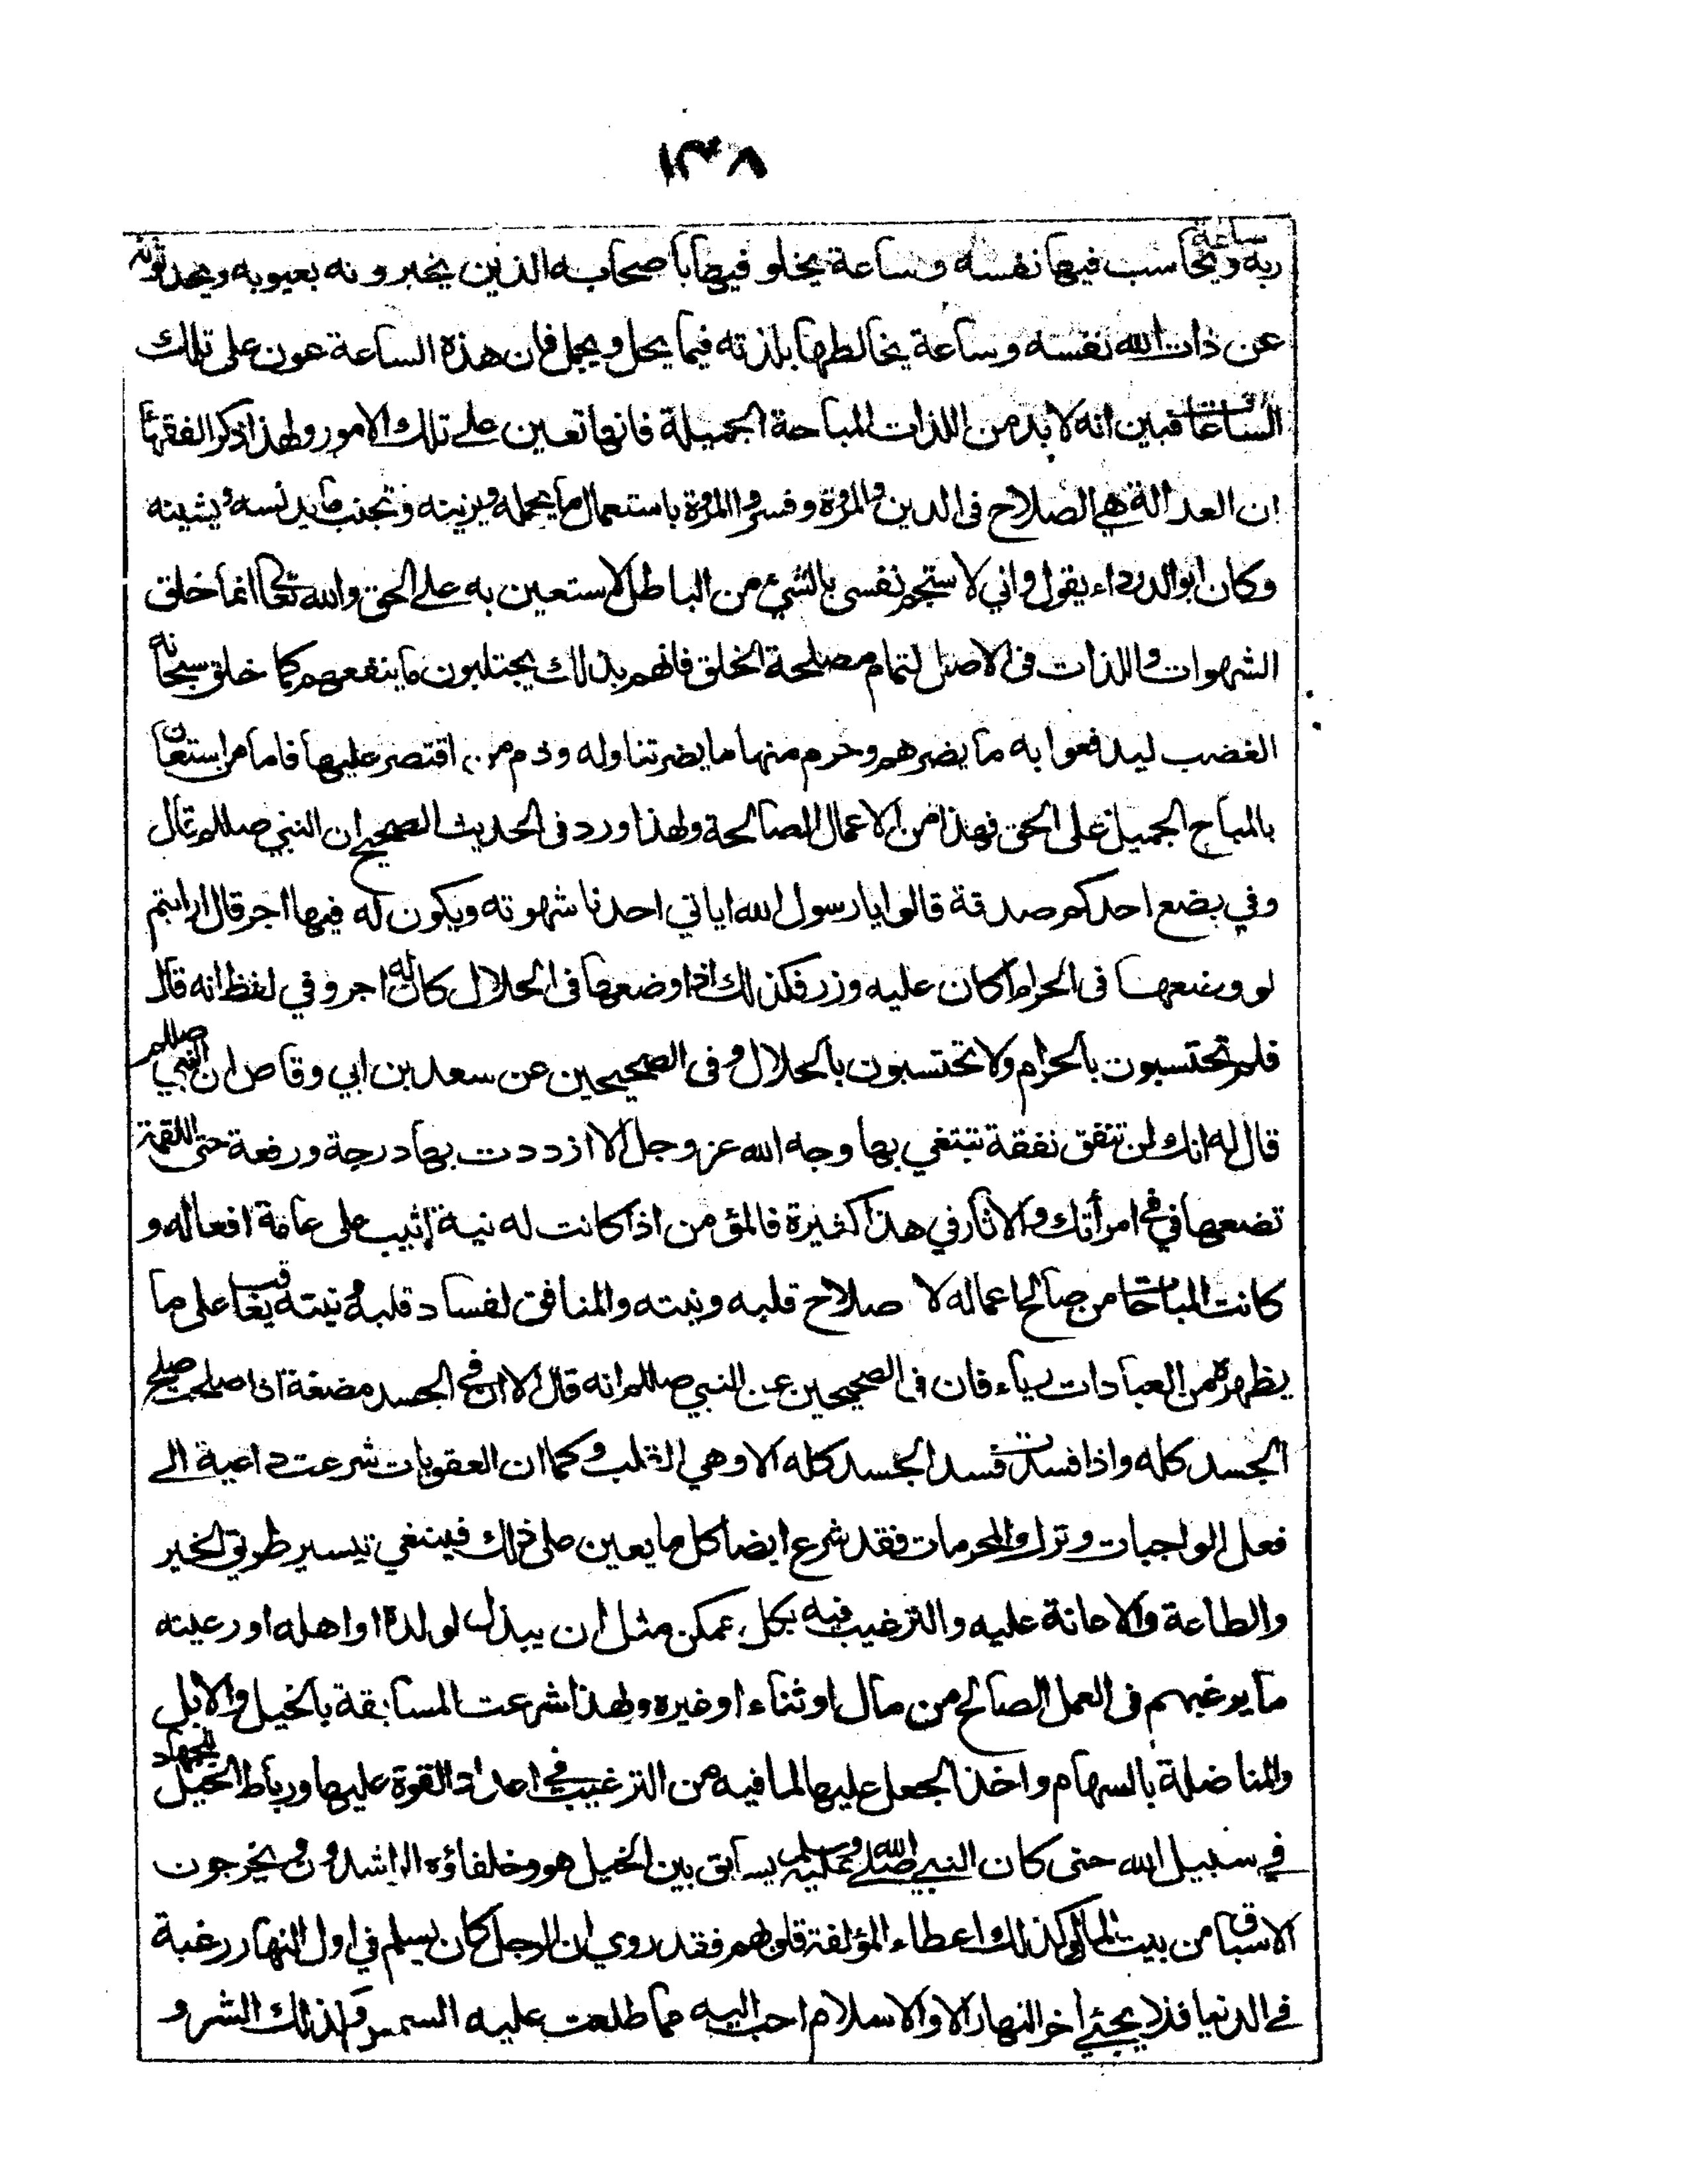 ١٣٠٧
ربه وساعة يحاسب فيها نفسه وساعة يخلو فيها باصحابه الذين يخبرونه بعيوبه ويحدثونه
عن ذات الله نفسه وساعة يخالطها بلذته فيما يحل ويجمل فان هذه الساعة عون على تلك
الساعات فبين انه لا بد من اللذات المباحة الجميلة فانها تعين على تلك الامور ولهذا ذكر الفقهاء
ان العدالة هي الصلاح فى الدين والمروة وفسروا المروة باستعمال ما يجمله ويزينه وتجنب ما يدنسه ويشينه
وكان ابو الدرداء يقول واني لاستجم نفسى بالشيء من الباطل لاستعين به على الحق والله تعالى انما خلق
الشهوات واللذات فى الاصل لتمام مصلحة الخلق فانهم بذالك يجتلبون ما ينفعهم كما خلق سبحانه
الغضب ليدفعوا به ما يضرهم وحرم منها ما يضر تناوله وذم من اقتصر عليها فاما من استعان
بالمباح الجميل على الحق فهذا من الاعمال الصالحة ولهذا ورد فى الحديث الصحيح ان النبي صللم قال
وفي بضع احدكم صدقة قالوا يا رسول الله اياتي احدنا شهوته ويكون له فيها اجر قال ارايتم
لو وضعها فى الحرام اكان عليه وزر فكذلك اذا وضعها فى الحلال كان له اجر وفي لفظ انه قال
فلم تحتسبون بالحرام ولا تحتسبون بالحلال وفى الصحيحين عن سعد بن ابي وقاص ان النبي صللم
قال له انك لن تنفق نفقة تبتغي بها وجه الله عز وجل الا ازددت بها درجة ورفعة حتى اللقمة
تضعها في في امرأتك والاثار في هذا كثيرة فالمؤمن اذا كانت له نية اثيب على عامة افعاله و
كانت المباحات من صالح اعماله لا صلاح قلبه ونيته والمنافق لفساد قلبه ونيته يعاقب على ما
يظهره من العبادات رياء فان فى الصحيحين عن النبي صللم انه قال الا ان في الجسد مضغة اذا صلحت صلح
الجسد كله واذا فسدت فسد الجسد كله الا وهي القلب وكما ان العقوبات شرعت داعية الى
فعل الواجبات وترك المحرمات فقد شرع ايضا كل ما يعين على ذلك فينبغي تيسير طريق الخير
والطاعة والاعانة عليه والترغيب فيه بكل ممكن مثل ان يبذل لولده او اهله او رعيته
ما يرغبهم فى العمل الصالح من مال او ثناء او غيره ولهذا شرعت المسابقة بالخيل والابل
والمناضلة بالسهام واخذ الجعل عليها لما فيه من الترغيب في اعداد القوة عليها ورباط الخيل للجهاد
في سبيل الله حتى كان النبي صلى الله عليه وسلم يسابق بين الخيل هو وخلفاؤه الراشدون ويخرجون
الاسباق من بيت المال وكذلك اعطاء المؤلفة قلوبهم فقد روي ان الرجل كان يسلم في اول النهار رغبة
في الدنيا فلا يجئي اخر النهار الا والاسلام احب اليه مما طلعت عليه الشمس وكذلك الشر و